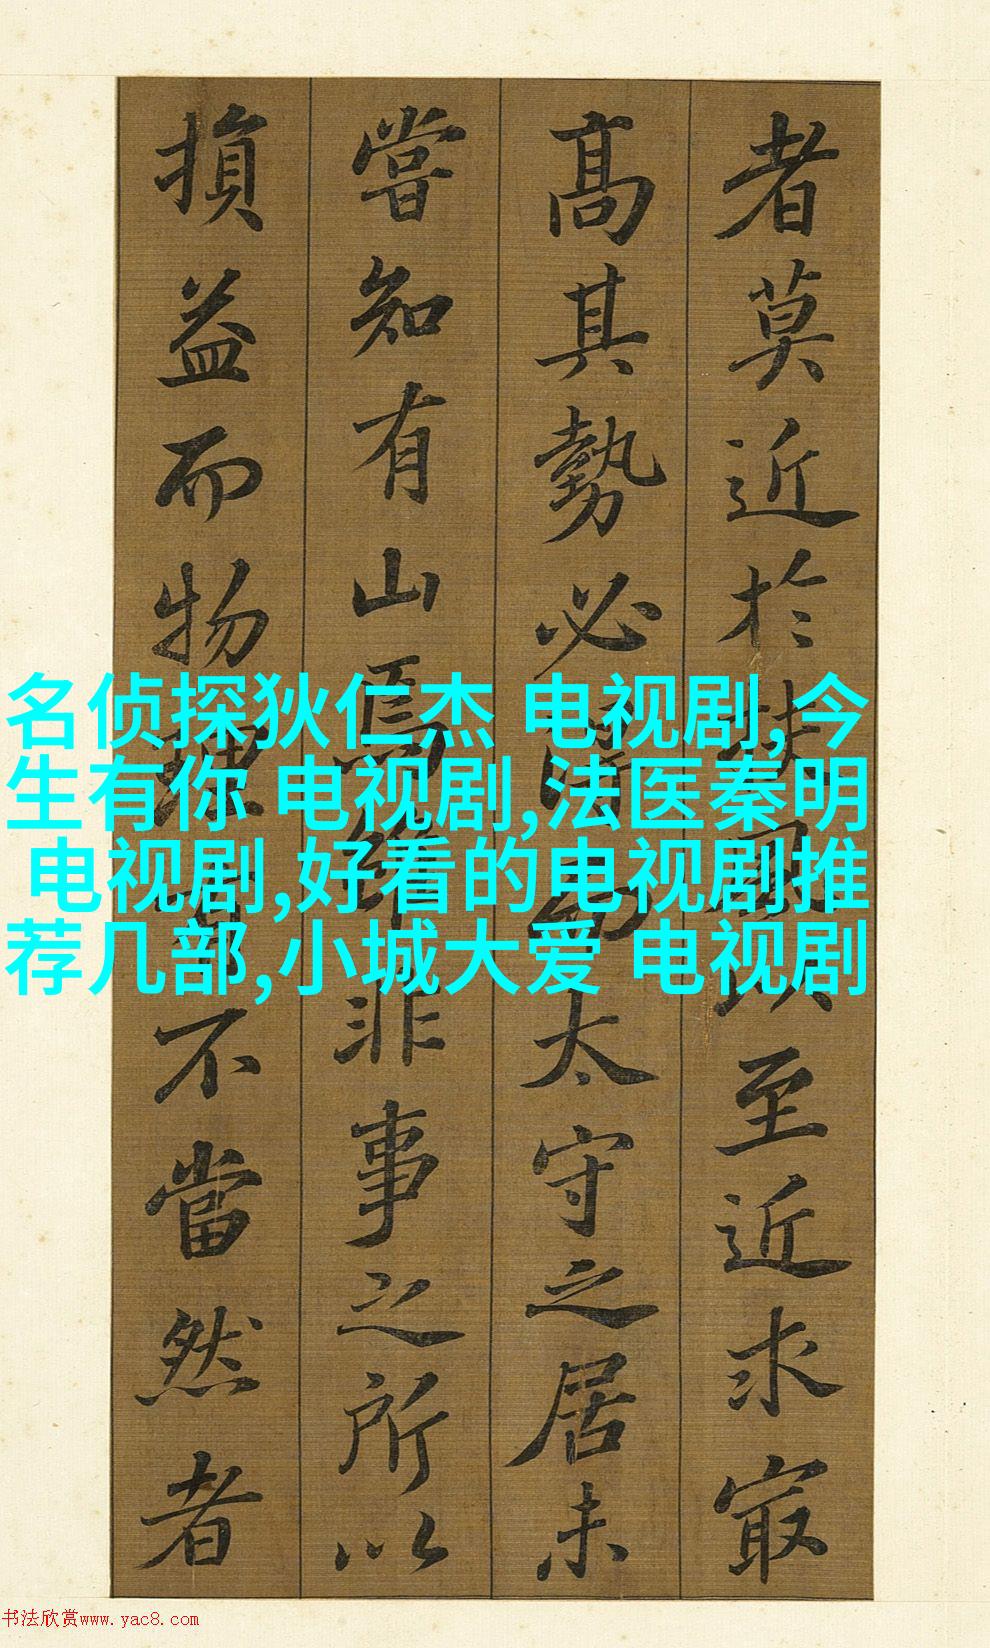 者莫近於扶風以至近求最
高其勢必得而太守之居未
嘗知有山焉雖非事之所以
損益而物理有不當然者
名侦探狄仁杰 电视剧,今
生有你 电视剧,法医秦明
电视剧,好看的电视剧推
荐几部,小城大爱 电视剧
书法欣赏www.yac8.com